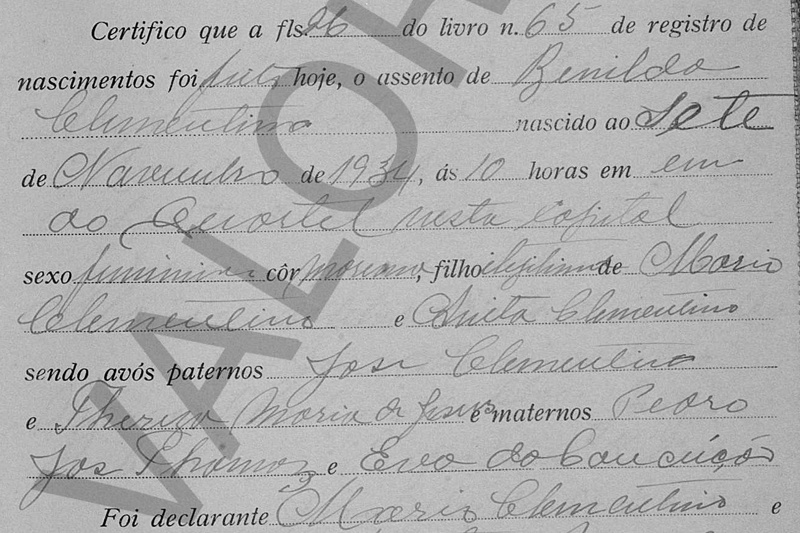 Certifico que a fls. 26 do livro n. 65 de registro de
nascimentos foi feito hoje, o assento de Benildo
Clementino nascido ao Sete
de Novembro de 1934, ás 10 horas em em
do Quartel nesta Capital
sexo feminino côr morena, filho de Mario
Clementino e Anita Clementino
sendo avós paternos José Clementino
e Thereza Maria de Jesus e maternos Pedro
José Thomaz e Eva da Conceição
Foi declarante Mario Clementino e
VALOR